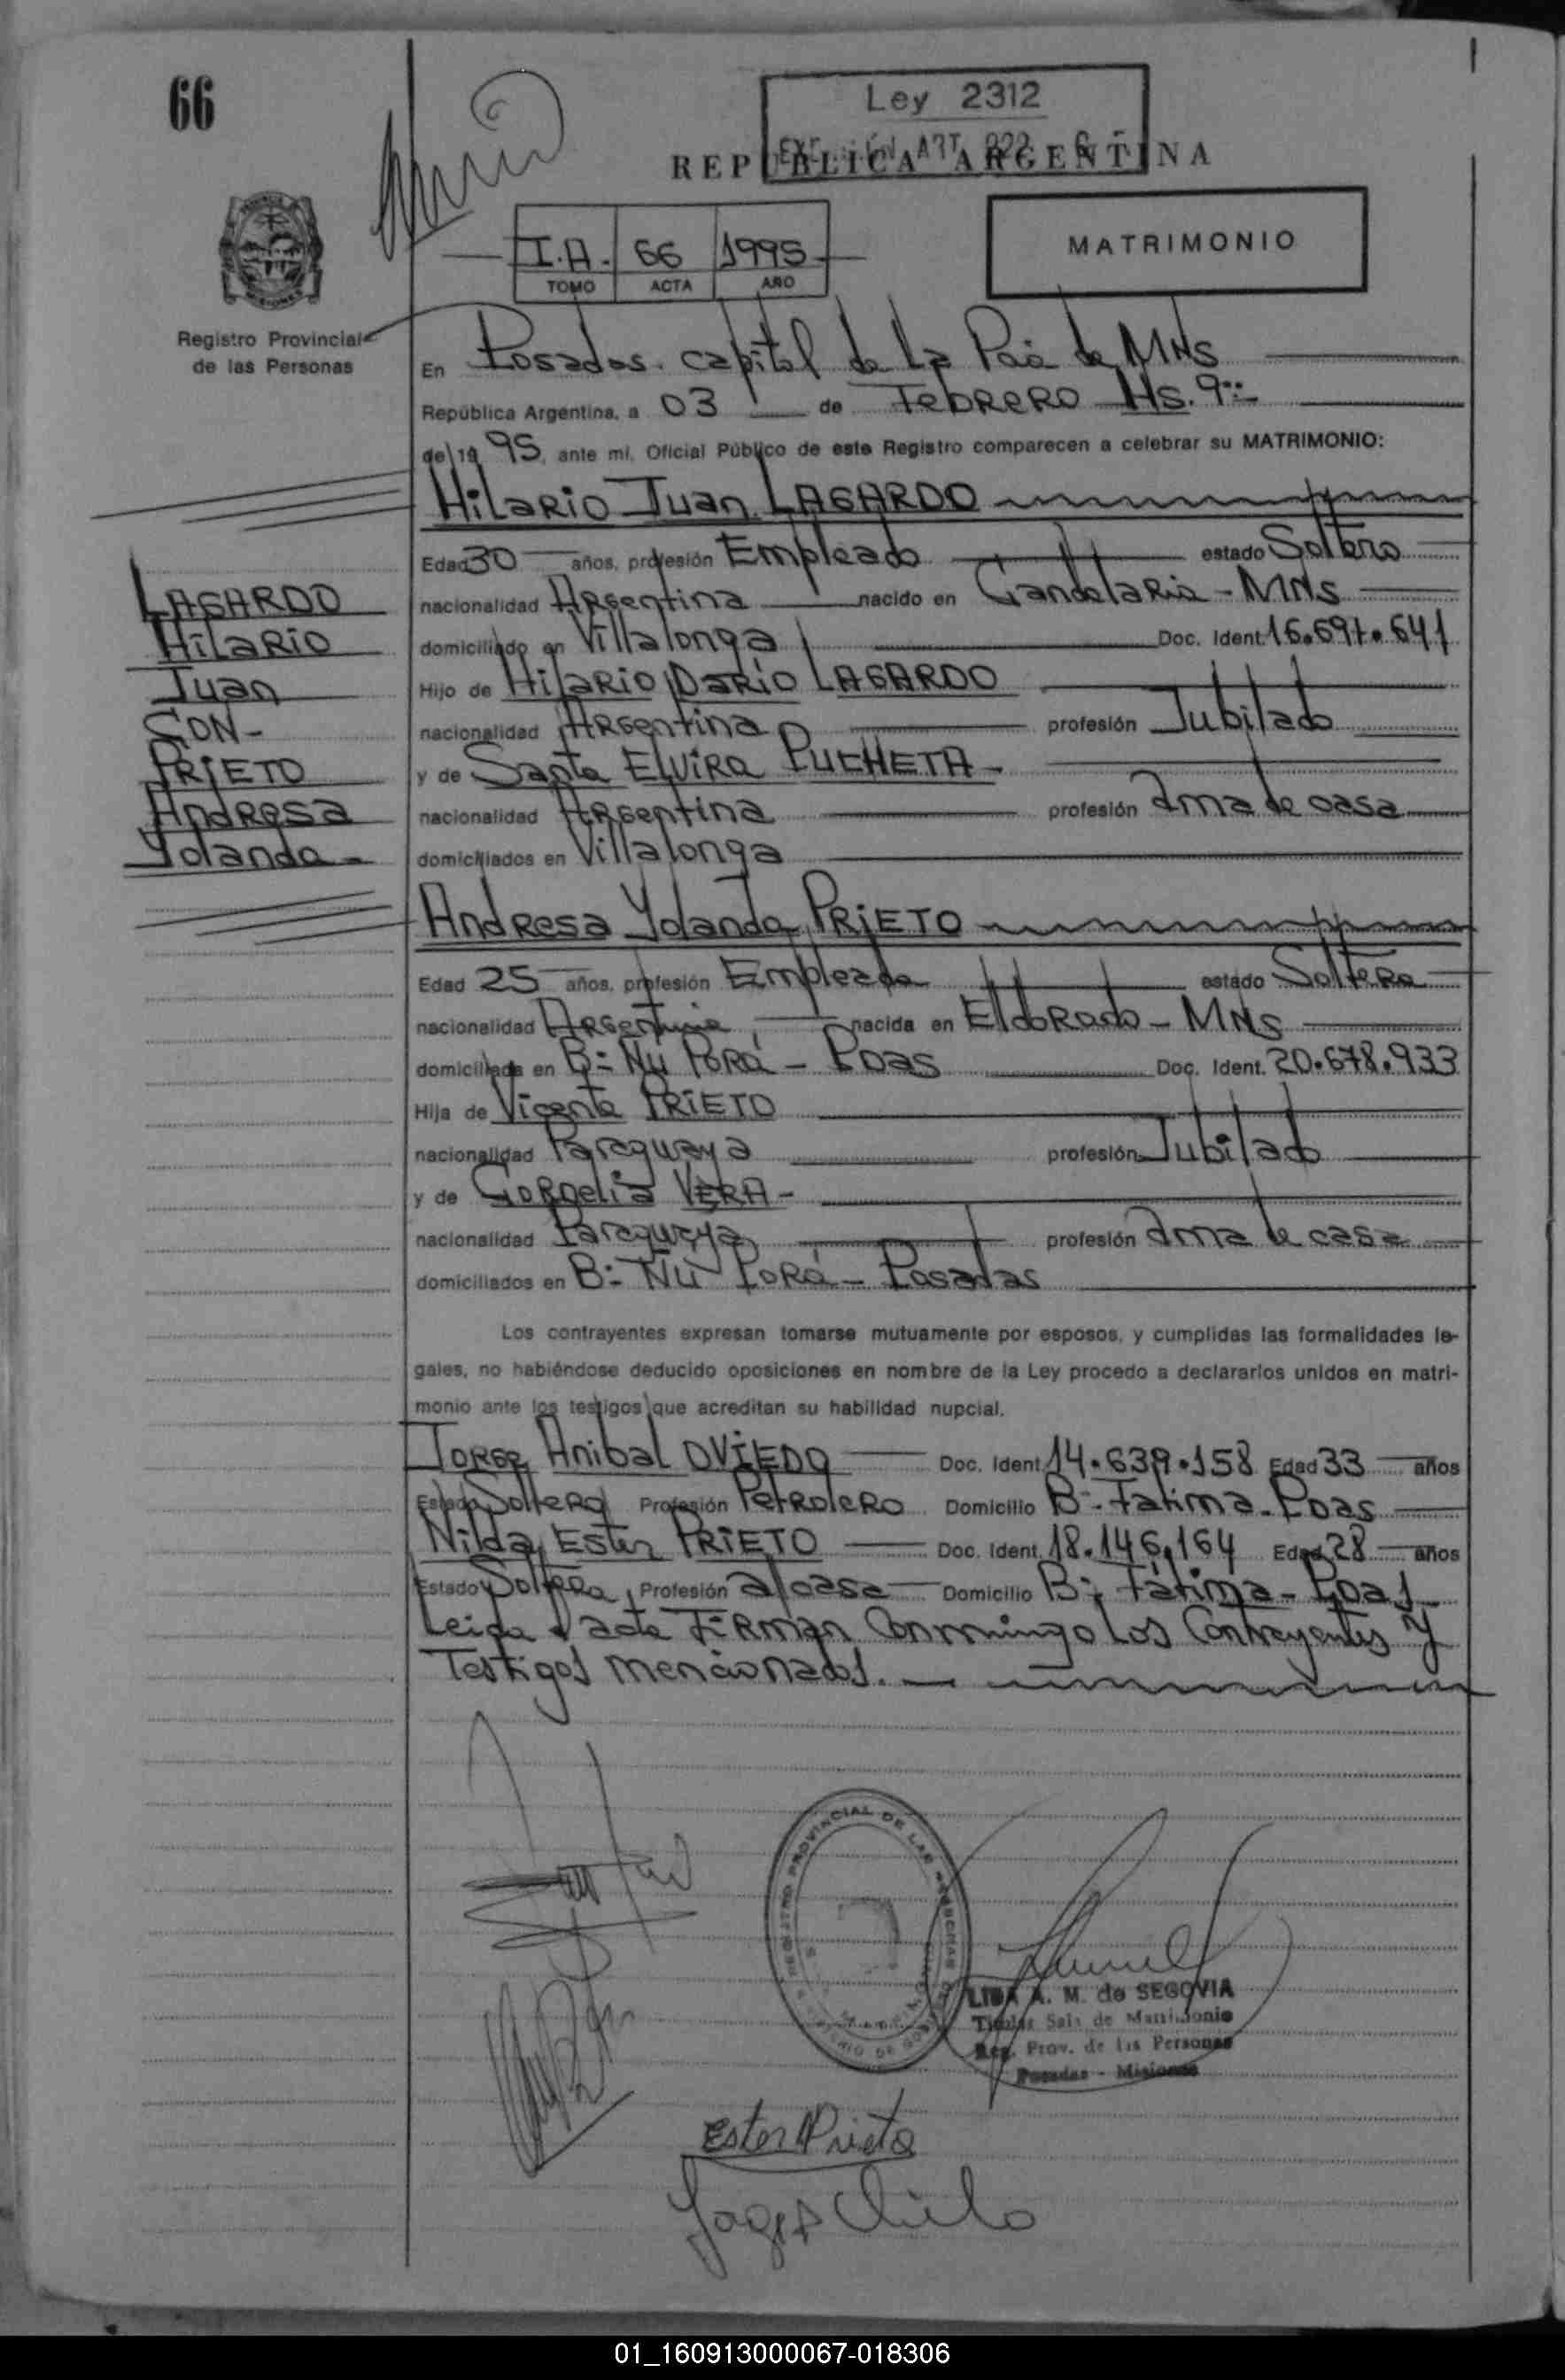 66
Ley 2312
REPUBLICA ARGENTINA
I.A. 66 1995
TOMO ACTA AÑO
MATRIMONIO
Registro Provincial
de las Personas
En Posadas. capital de La Pcia de MNS
República Argentina, a 03 de Febrero Hs. 9
de 19 95, ante mí, Oficial Público de este Registro comparecen a celebrar su MATRIMONIO:
Hilario Juan LAGARDO
Edad 30 años, profesión Empleado estado Soltero
nacionalidad Argentina nacido en Candelaria - MNS
domiciliado en Villalonga Doc. Ident. 16.691.641
Hijo de Hilario Darío LAGARDO
nacionalidad Argentina profesión Jubilado
y de Santa Elvira PUCHETA -
nacionalidad Argentina profesión ama de casa
domiciliados en Villalonga
LAGARDO
Hilario
Juan
CON -
PRIETO
Andresa
Yolanda -
Andresa Yolanda PRIETO
Edad 25 años, profesión Empleada estado Soltera
nacionalidad Argentina nacida en Eldorado - MNS
domiciliada en B: Ñu Porá - Pdas Doc. Ident. 20.678.933
Hija de Vicente PRIETO
nacionalidad Paraguaya profesión Jubilado
y de Cornelia VERA -
nacionalidad Paraguaya profesión ama de casa
domiciliados en B: Ñu Porá - Posadas
Los contrayentes expresan tomarse mutuamente por esposos, y cumplidas las formalidades le-
gales, no habiéndose deducido oposiciones en nombre de la Ley procedo a declararlos unidos en matri-
monio ante los testigos que acreditan su habilidad nupcial.
Jorge Anibal OVIEDO Doc. Ident. 14.639.158 Edad 33 años
Estado Soltero Profesión Petrolero Domicilio B: Fatima - Pdas
Nilda Ester PRIETO Doc. Ident. 18.146.164 Edad 28 años
Estado Soltera Profesión a/casa Domicilio B: Fátima - Pdas
Leida el acta Firman Conmingo Los Contrayentes y
Testigos mencionados.
REGISTRO PROVINCIAL DE LAS PERSONAS
A. M. de SEGOVIA
Titular Sala de Matrimonio
Reg. Prov. de las Personas
Posadas - Misiones
Ester Prieto
01_160913000067-018306